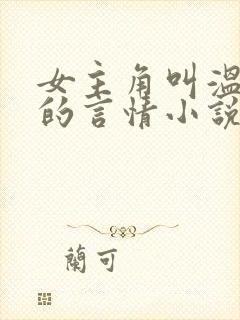 女主角叫溫
的言情小說
蘭可